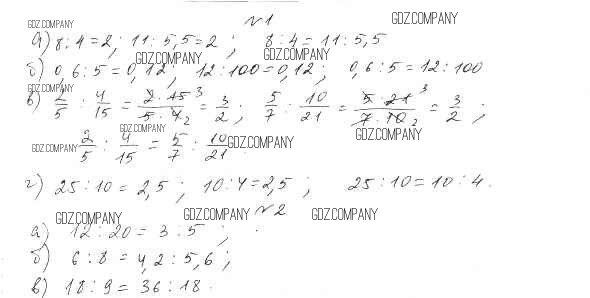 GDZ.COMPANY №1 GDZ.COMPANY
а) 8 : 4 = 2; 11 : 5,5 = 2; 8 : 4 = 11 : 5,5
GDZ.COMPANY GDZ.COMPANY
б) 0,6 : 5 = 0,12; 12 : 100 = 0,12; 0,6 : 5 = 12 : 100
GDZ.COMPANY
в) 2/5 : 4/15 = 2·15 3/5·4 2 = 3/2; 5/7 : 10/21 = 5·21 3/7·10 2 = 3/2;
GDZ.COMPANY GDZ.COMPANY
GDZ.COMPANY 2/5 : 4/15 = 5/7 : 10/21 GDZ.COMPANY
г) 25 : 10 = 2,5; 10 : 4 = 2,5; 25 : 10 = 10 : 4.
GDZ.COMPANY GDZ.COMPANY №2 GDZ.COMPANY
а) 12 : 20 = 3 : 5;
б) 6 : 8 = 4,2 : 5,6;
в) 18 : 9 = 36 : 18.